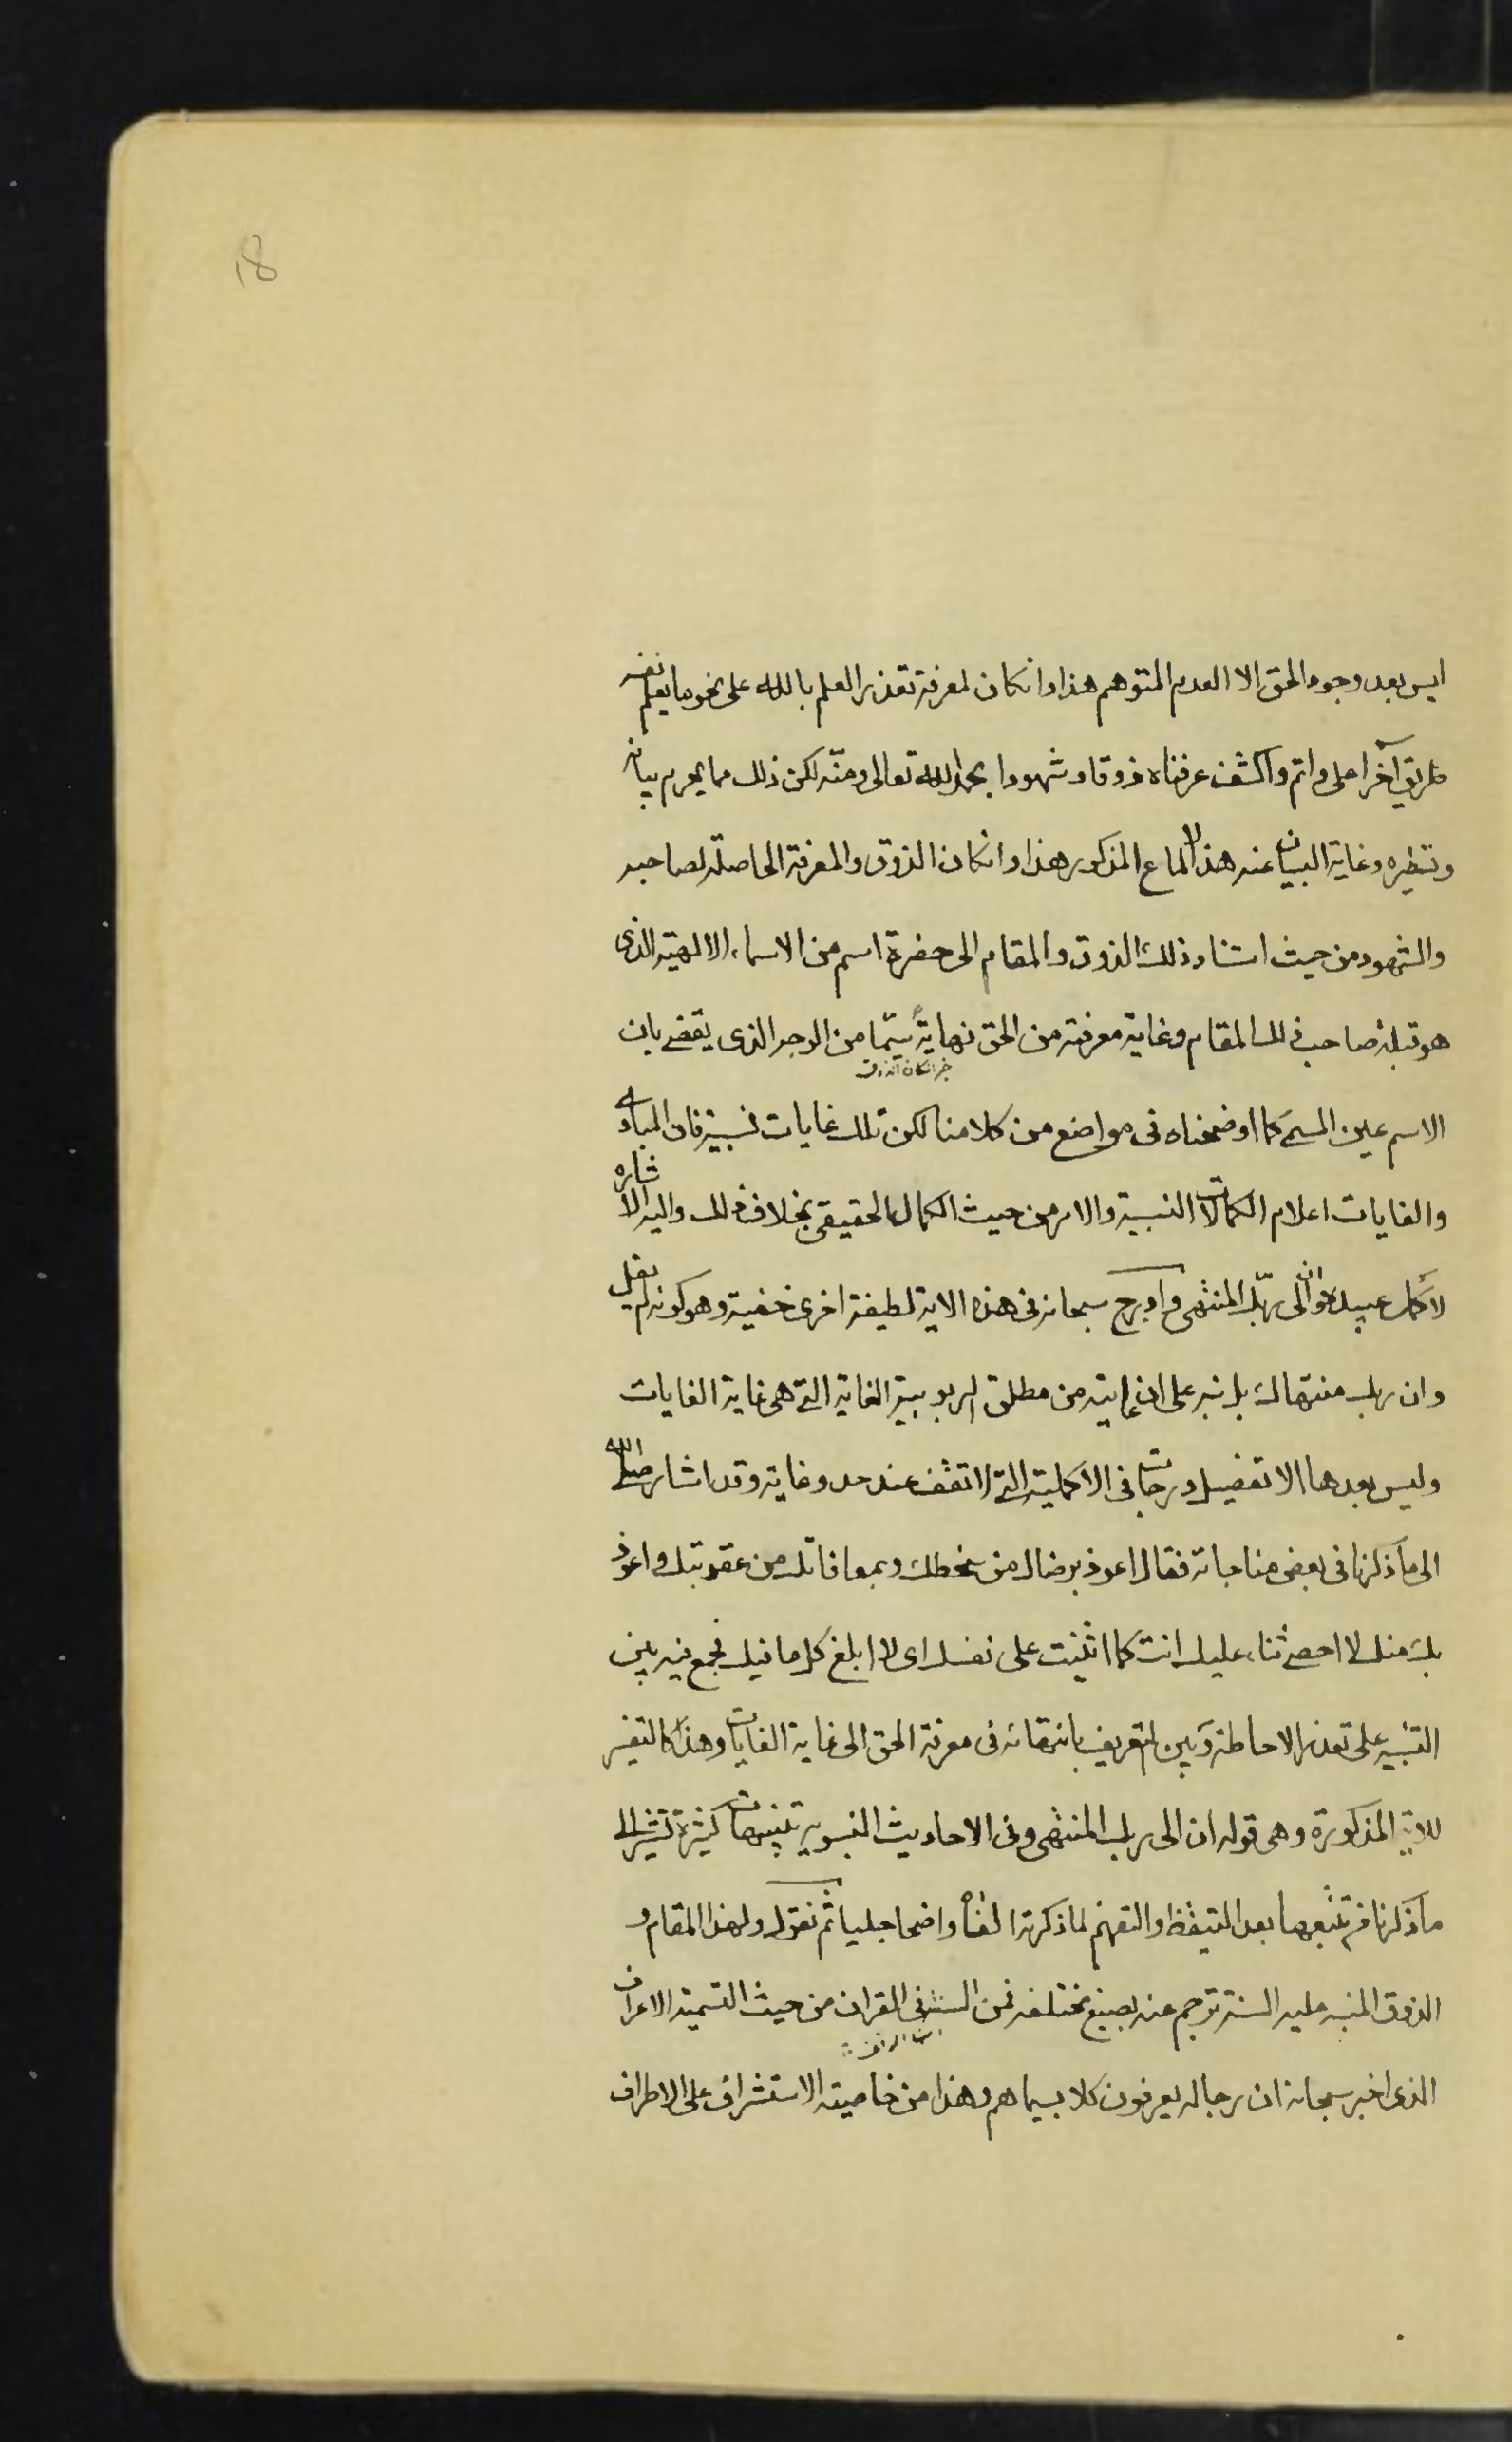 18
ليس بعد وجود الحق الا العدم المتوهم هذا وانكان لمعرفة تعذر العلم بالله على نحو ما يعلم نفسه
طريق آخر اعلى واتم واكشف عرفناه ذوقا وشهودا بحمد الله تعالى ومنّه لكن ذلك مما يحرم بيانه
وتسطيره وغاية البيان عنه هذا الالماع المذكور هذا وانكان الذوق والمعرفة الحاصلة لصاحبه
والشهود من حيث استناد ذلك الذوق والمقام الى حضرة اسم من الاسماء الالهية الذى
هو قبلة صاحب ذلك المقام وغاية معرفته من الحق نهايةً يتيمّا من الوجه الذى يقضى بان
خبر انكان الذوق
الاسم عين المسمى كما اوضحناه فى مواضع من كلامنا لكن تلك غايات نسبية فان المبادى
والغايات اعلام الكمالات النسبية والامر من حيث الكمال الحقيقى بخلاف ذلك واليه الاشاره
لاكمل عبيده وان الى ربك المنتهى وادرج سبحانه فى هذه الاية لطيفة اخرى خفية وهو كونه لم يقل
وان ربك منتهاك بل نبه على ان غايته من مطلق الربوبية الغاية التى هى غاية الغايات
وليس بعدها الا تفصيل درجات فى الاكملية التى لا تقف عند حد وغاية وقد اشار صلى الله
الى ما ذكرنا فى بعض مناجاته فقال اعوذ برضاك من سخطك وبمعافاتك من عقوبتك واعوذ
بك منك لا احصى ثناء عليك انت كما اثنيت على نفسك اى لا ابلغ كل ما فيك فجمع فيه بين
التنبيه على تعذر الاحاطة وبين التعريف بانتهائه فى معرفة الحق الى غاية الغايات وهذا كالتفسير
للاية المذكورة وهى قوله ان الى ربك المنتهى وفى الاحاديث النبوية تنبيهات كثيرة تشير الى
ما ذكرنا فمن تتبعها بعد التيقظ والتفهم لما ذكرته الفاه واضحا جليا ثم نقول ولهذا المقام و
الذوق المنبه عليه السنة تترجم عنه بصيغ مختلفة فمن السنته فى القران من حيث التسمية الاعراف
الذى اخبر سبحانه ان رجاله يعرفون كلا بسيماهم وهذا من خاصية الاستشراف على الاطراف